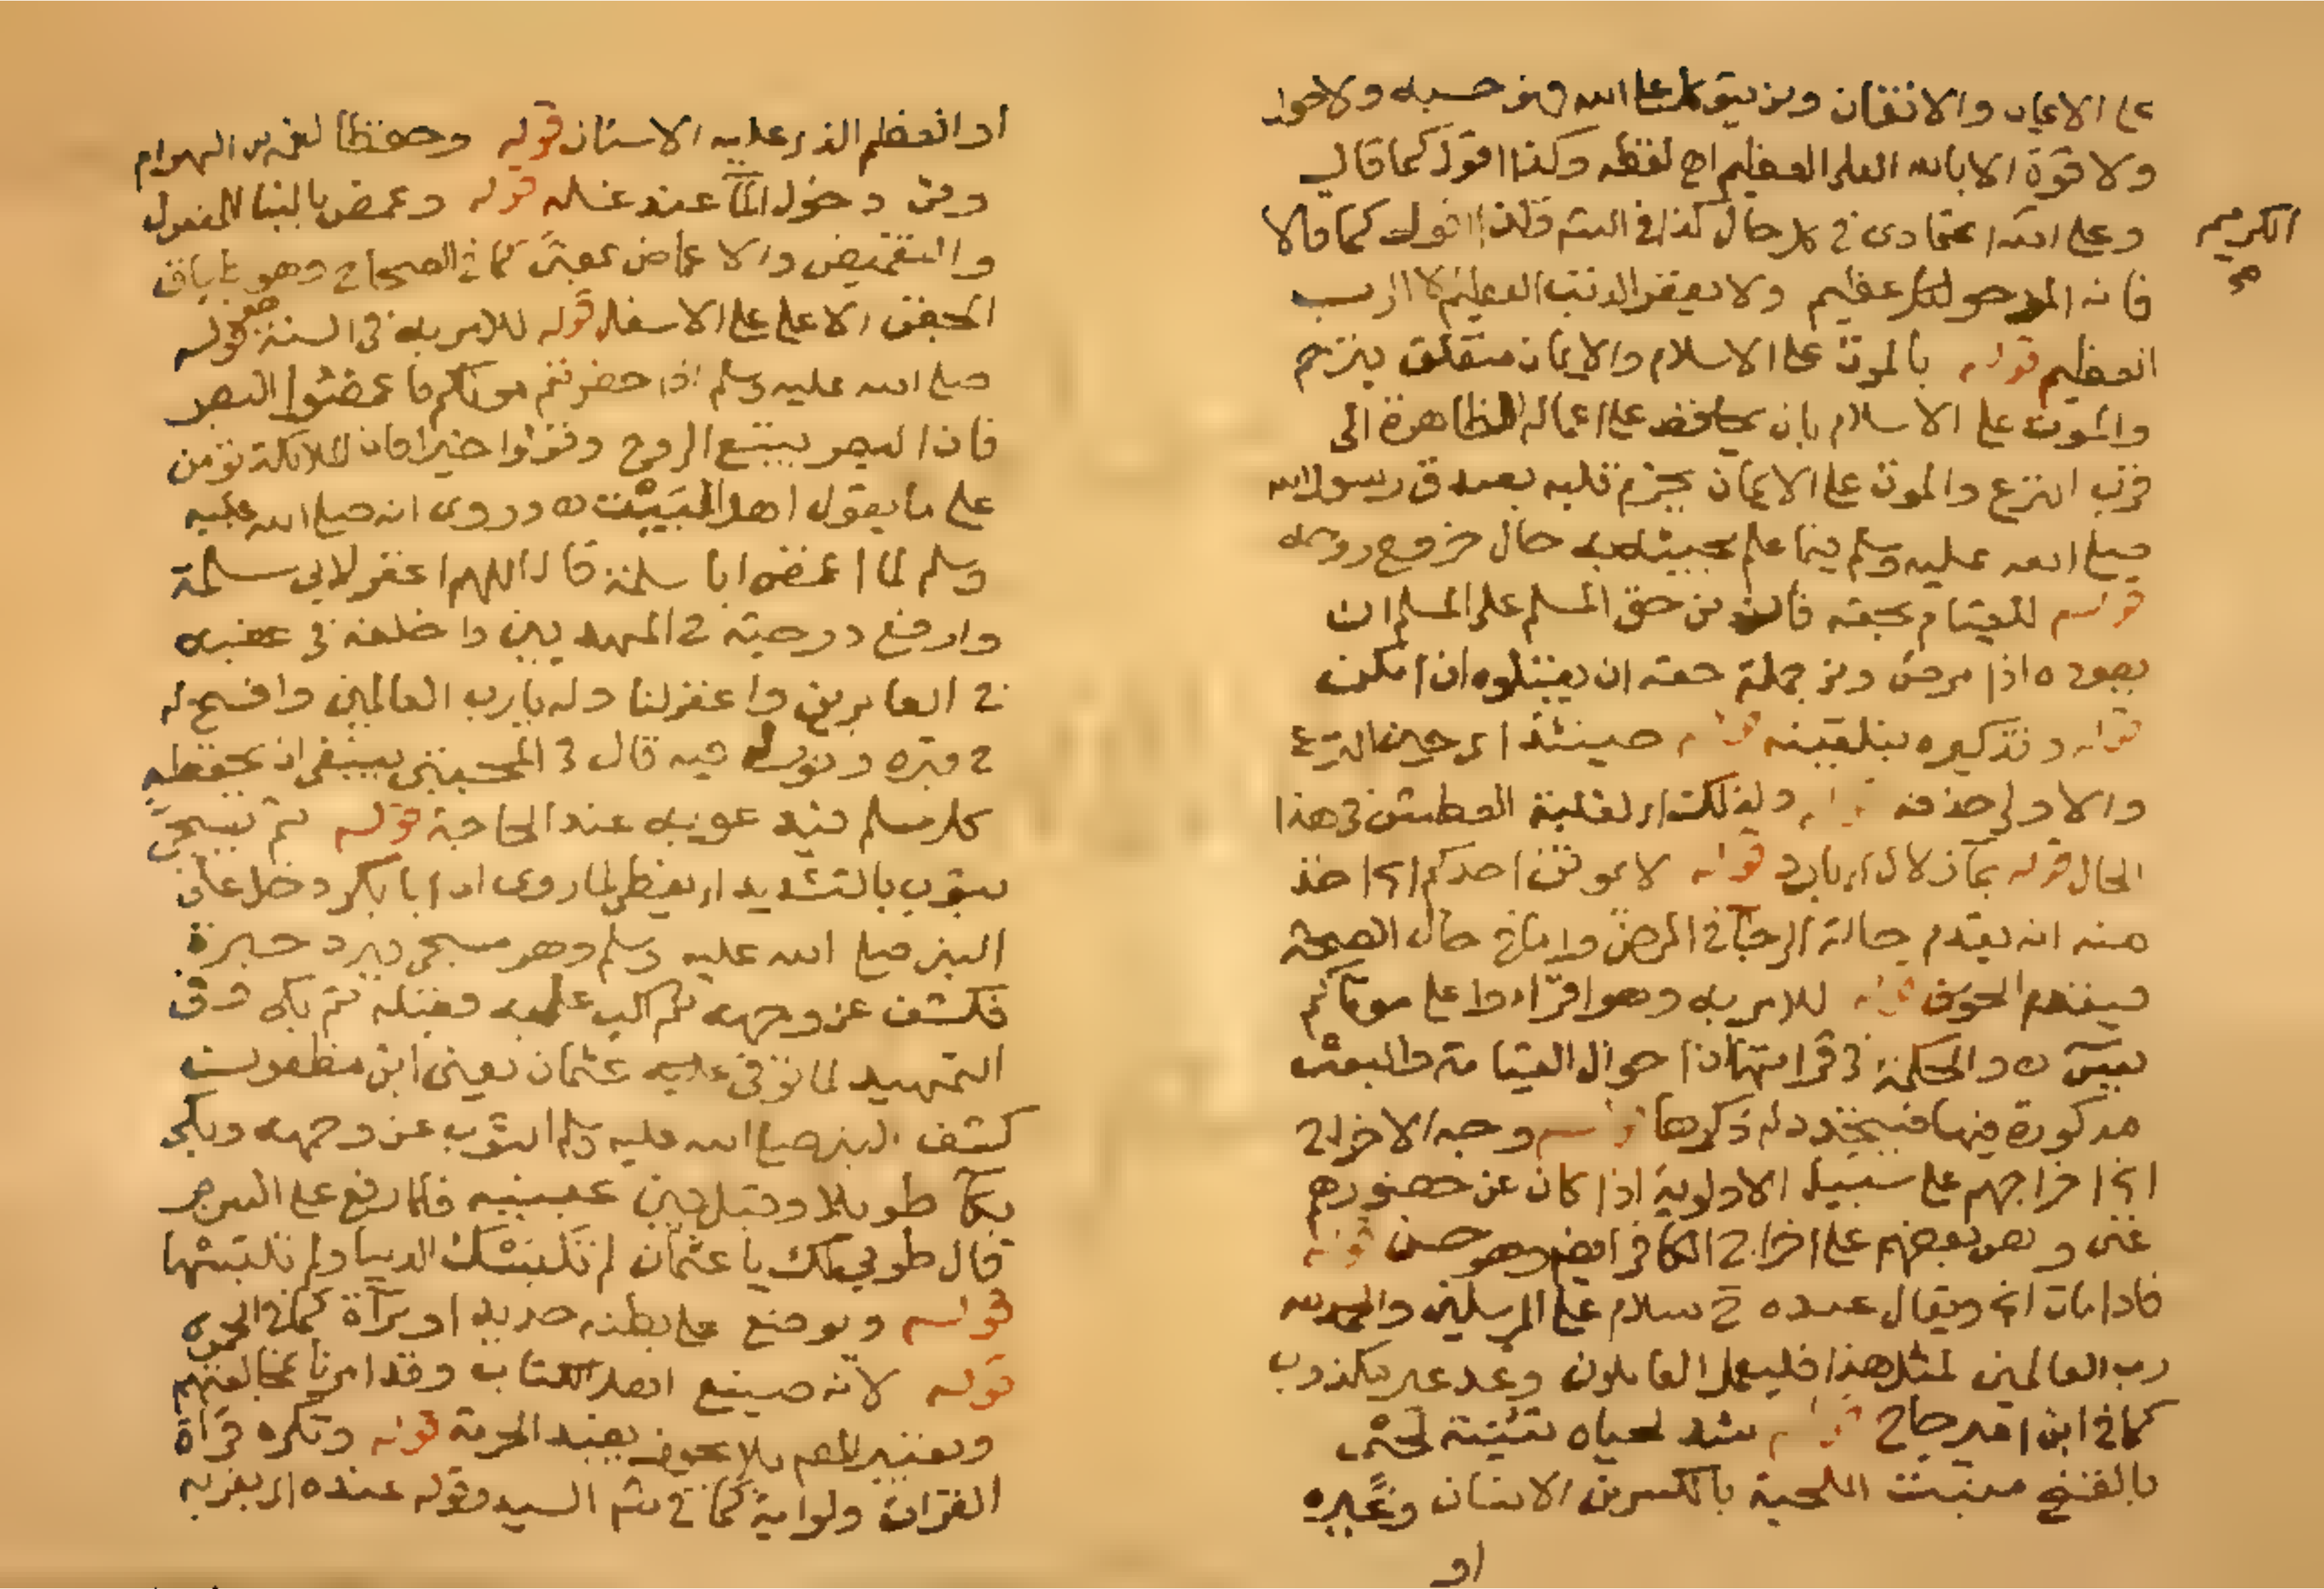 على الاعيان والاتقان ومن يتوكل على الله فهو حسبه ولاحول
ولا قوة الا بالله العلى العظيم اھ لفظه وكذا اقول كما قال
وعلى الله اعتمادى فى كل حال كذا فى الشم قلت اقول كما قالا
الكريم
فانه المرجو لكل عظيم ولا يغفر الذنب العظيم الا الرب
العظيم قوله بالموت على الاسلام والايمان متعلق بيتزحم
والموت على الاسلام بان يحافظ على اعماله الظاهرة الى
قرب النزع والموت على الايمان بجزم قلبه بصدق رسول الله
صلى الله عليه وسلم فيما علم مجيئه به حال خروج روحه
قوله للقيام بحقه فان من حق المسلم على المسلم ان
يعوده اذا مرض ومن جملة حقه ان يغسلوه ان امكن
قوله وتذكيره بتلقينه قوله حينئذ اى حين النزع
والاولى حذفه قوله ولذلك اى لغلبة العطش فى هذا
الحال قوله بمآ زلال اى بارد قوله لا يموتن احدكم الخ اخذ
منه انه يقدم حالة الرجآ فى المرض واما فى حال الصحة
فيقدم الخوف قوله للامر به وهو اقرءوا على موتاكم
يسٓ ه والحكمة فى قرائتها ان احوال القيامة والبعث
مذكورة فيها فيتجدد له ذكرها قوله وجه الاخراج
الخ اخراجهم على سبيل الاولوية اذا كان عن حضورهم
غنى ونص بعضهم على اخراج الكافر ايضا وهو حسن قوله
فاذا مات الخ ويقال عنده ح سلام على المرسلين والحمد لله
رب العالمين لمثل هذا فليعمل العاملون وعد غير مكذوب
كما فى ابن امير حاج قوله شد لحياه تثنية لحى
بالفتح منبت اللحية بالكسر من الانسان وغيره
او
او العظم الذى عليه الاسنان قوله وحفظا لفمه من الهوام
ومن دخول المآ عند غسله قوله وغمض بالبنا للمفعول
والتغميض والاغماض بمعنى كما فى الصحاح وهو اطباق
الجفن الاعلى على الاسفل قوله للامر به فى السنة هو قوله
صلى الله عليه وسلم اذا حضرتم موتاكم فاغمضوا البصر
فان البصر يتبع الروح وقولوا خيرا فان الملائكة تؤمن
على ما يقول اهل البيت ه وروى انه صلى الله عليه
وسلم لما اغمض ابا سلمة قال اللهم اغفر لابى سلمة
وارفع درجته فى المهديين واخلفه فى عقبه
فى الغابرين واغفر لنا وله يا رب العالمين وافسح له
فى قبره ونور له فيه قال فى المجتبى ينبغى ان يحفظه
كل مسلم فيدعو به عند الحاجة قوله ثم يسجى
بثوب بالتشديد اى يغطى لما روى ان ابا بكر دخل على
النبى صلى الله عليه وسلم وهو مسجى ببرد حبرة
فكشف عن وجهه ثم اكب عليه فقبله ثم بكى وفى
التمهيد لما توفى عليه عثمان يعنى ابن مظعون
كشف النبى صلى الله عليه وسلم الثوب عن وجهه وبكى
بكآ طويلا وقبل بين عينيه فلما رفع على السرير
قال طوبى لك يا عثمان لم تلبسك الدنيا ولم تلبسها
قوله ويوضع على بطنه حديد او مرآة كما فى الجوهره
قوله لانه صنيع اهل الكتاب وقد امرنا بمخالفتهم
وتعبير المص بلا يجوز يفيد الحرمة قوله وتكره قرآة
القران ولو اية كما فى شم السيد وقوله عنده اى بقربه